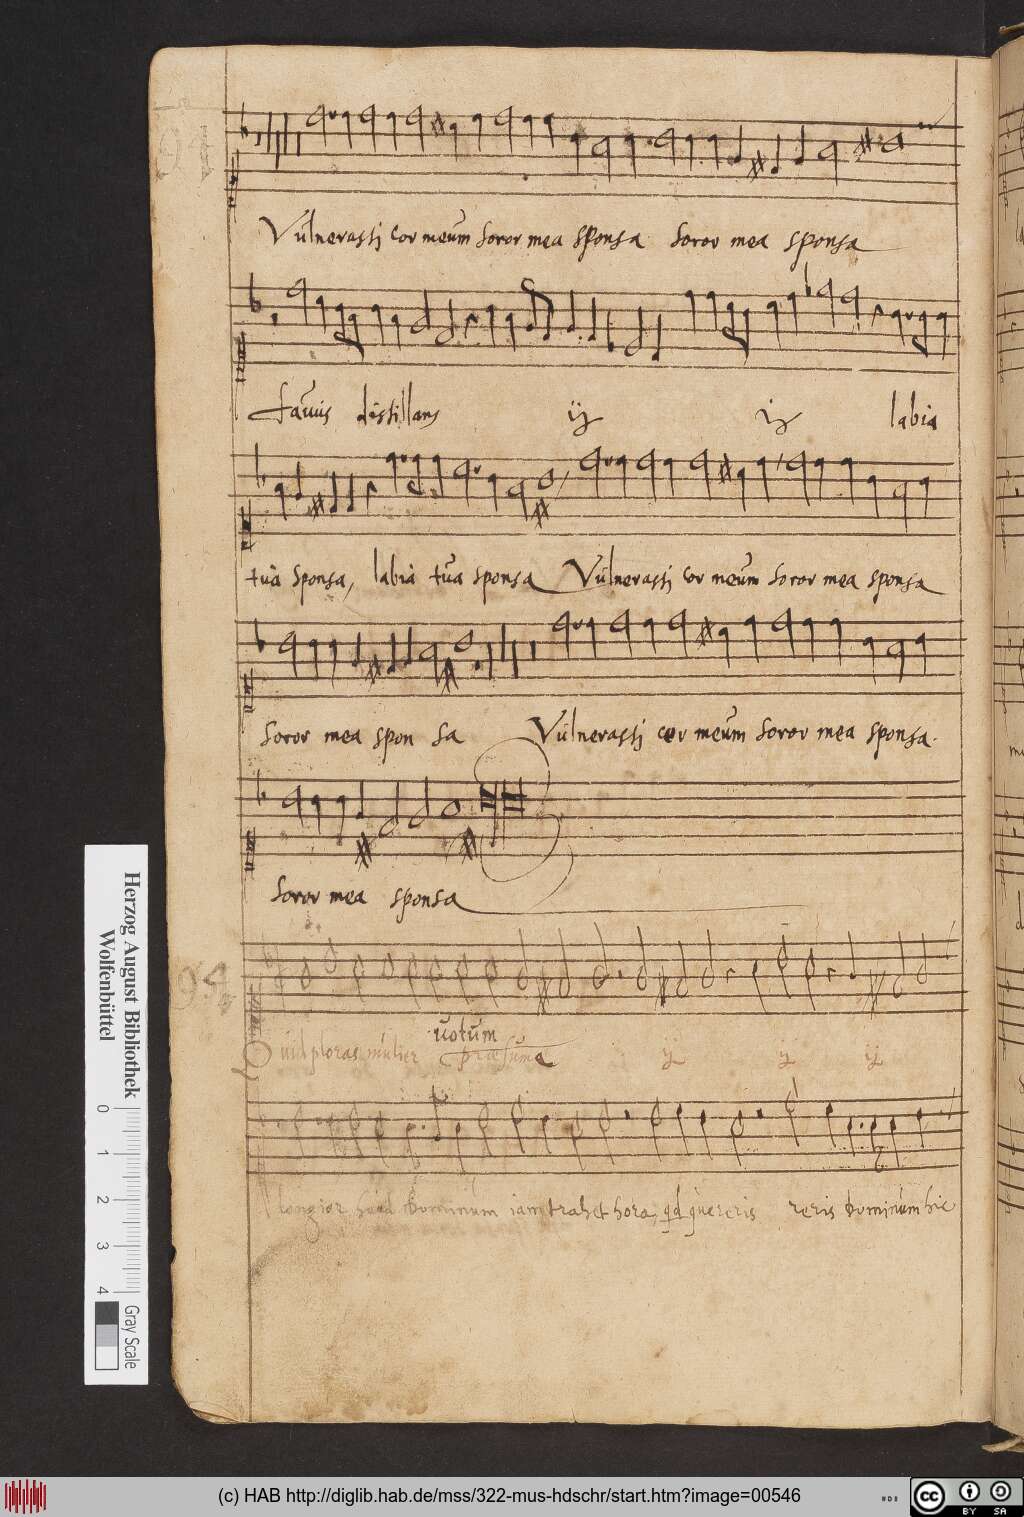 Vulnerasti cor meum soror mea sponsa soror mea sponsa
fauus distillans ij ij labia
tua sponsa, labia tua sponsa Vulnerasti cor meum soror mea sponsa
soror mea spon sa Vulnerasti cor meum soror mea sponsa.
soror mea sponsa
94
uotum
Quid ploras mulier præsume ij ij ij
longior haud Dominum iam trahet hora, qd quereris reris Dominum hic
Herzog August Bibliothek
Wolfenbüttel
0 1 2 3 4
Gray Scale
(c) HAB http://diglib.hab.de/mss/322-mus-hdschr/start.htm?image=00546
cc BY SA